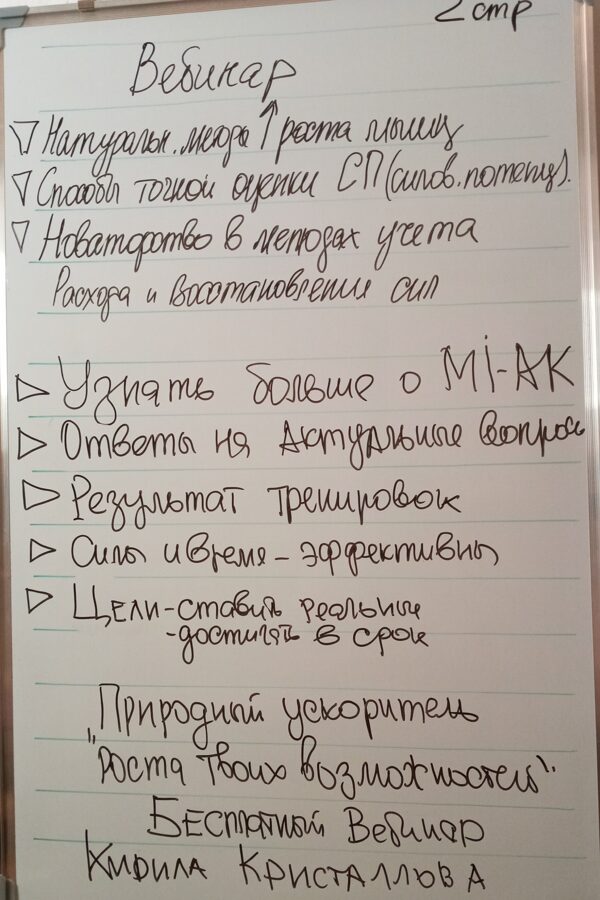 2 стр
Вебинар
▽ Натуральн. методы ↑ роста мышц
▽ Способы точной оценки СП (силов. потенц).
▽ Новаторство в методах учета
Расхода и восстановления сил
▷ Узнать больше о Mi-AK
▷ Ответы на Актуальные вопросы
▷ Результат тренировок
▷ Силы и время - эффективны
▷ Цели - ставить реальные
- достигать в срок
"Природный ускоритель
роста твоих возможностей".
Бесплатный Вебинар
Кирила Кристаллова